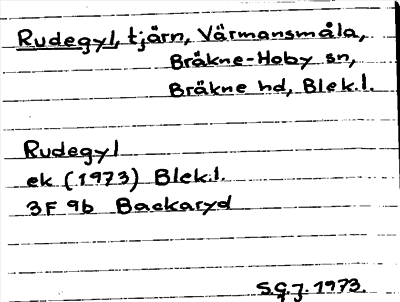 Rudegyl, tjärn, Värmansmåla,
Bräkne-Hoby sn,
Bräkne hd, Blek.l.
Rudegyl
ek (1973) Blek.l.
3F 9b Backaryd
S.G.J. 1973.